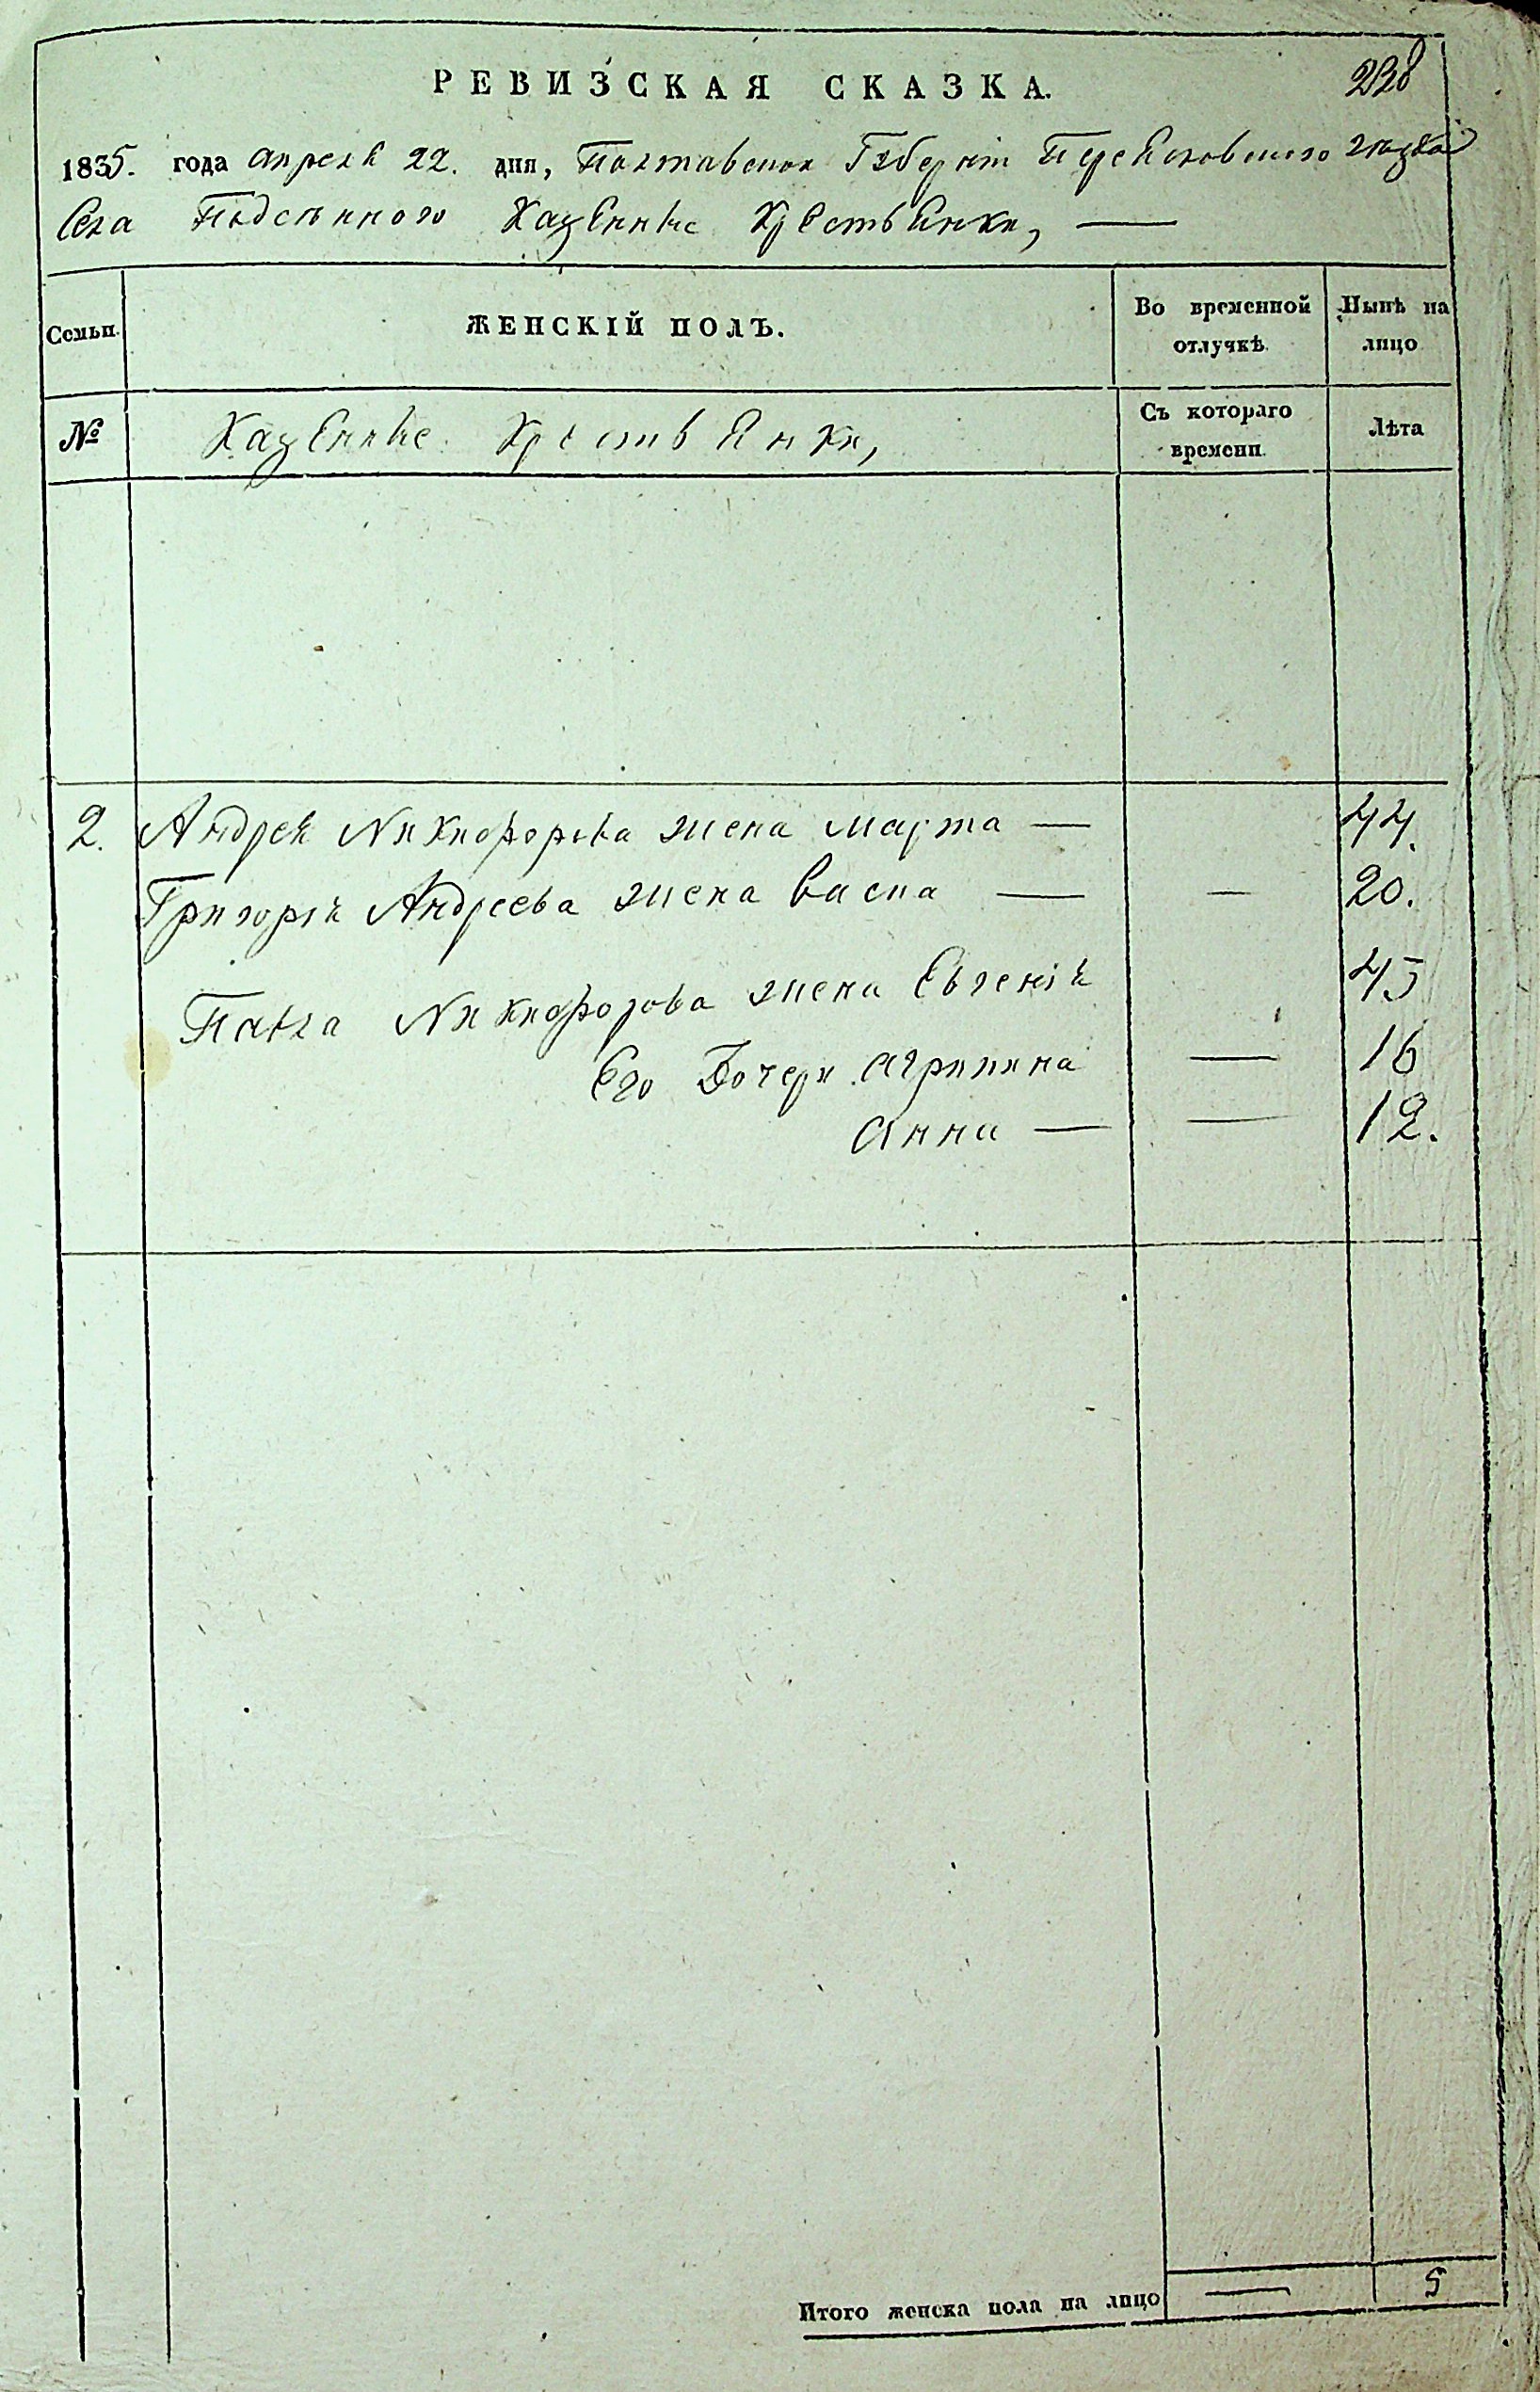 РЕВИЗСКАЯ СКАЗКА.
238
1835. года апреля 22. дня, Полтавской Губерніи Переясловского уезда
Села Подсѣнного Казенные Крестьянки, —
Семьи.
ЖЕНСКІЙ ПОЛЪ.
Во временной отлучкѣ.
Нынѣ на лицо
№
Казенные Крестьянки,
Съ котораго времени.
Лѣта
2. Андрея Никифорова жена Марта — 44.
Григорія Андреева жена Васса — — 20.
Павла Никифорова жена Евгенія 45
Его Дочери Агрипина — 16
Анна — — 12.
Итого женска пола на лицо — 5